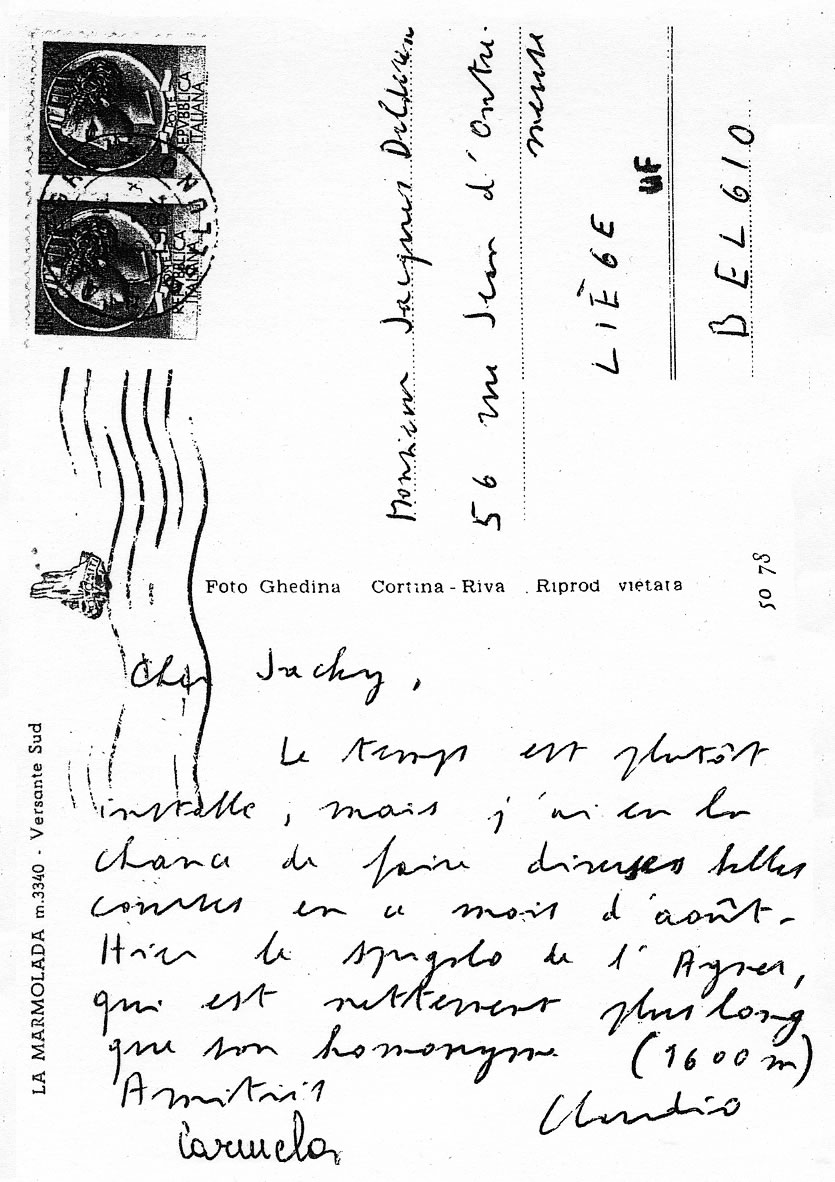 POSTE
REPVBBLICA
ITALIANA
POSTE
REPVBBLICA
ITALIANA
Monsieur Jacques
56 rue Jean d'Outre
meuse
LIÈGE
BELGIO
Foto Ghedina Cortina - Riva . Riprod vietata
5078
LA MARMOLADA m.3340 - Versante Sud
Cher Jacky,
Le temps est plutôt
instable, mais j'ai eu la
chance de faire diverses belles
courses en ce mois d'août.
Hier le spigolo de l'Agner,
qui est nettement plus long
que son homonyme (1600 m)
Amitiés
Claudio
Carmela